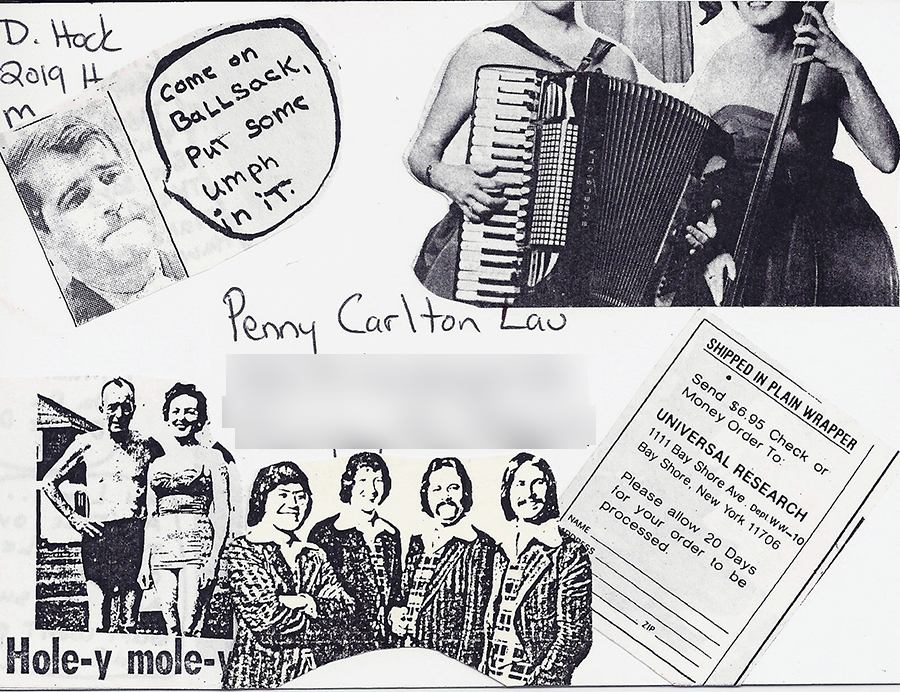 D. Hock
2019 H
m
Come on
Ballsack,
Put some
umph
in iT.
Penny Carlton Lau
SHIPPED IN PLAIN WRAPPER
Send $6.95 Check or
Money Order To:
UNIVERSAL RESEARCH
1111 Bay Shore Ave Dept. WW-10
Bay Shore, New York 11706
Please allow 20 Days
for your order to be
processed.
NAME
ADDRESS
ZIP
Hole-y mole-y